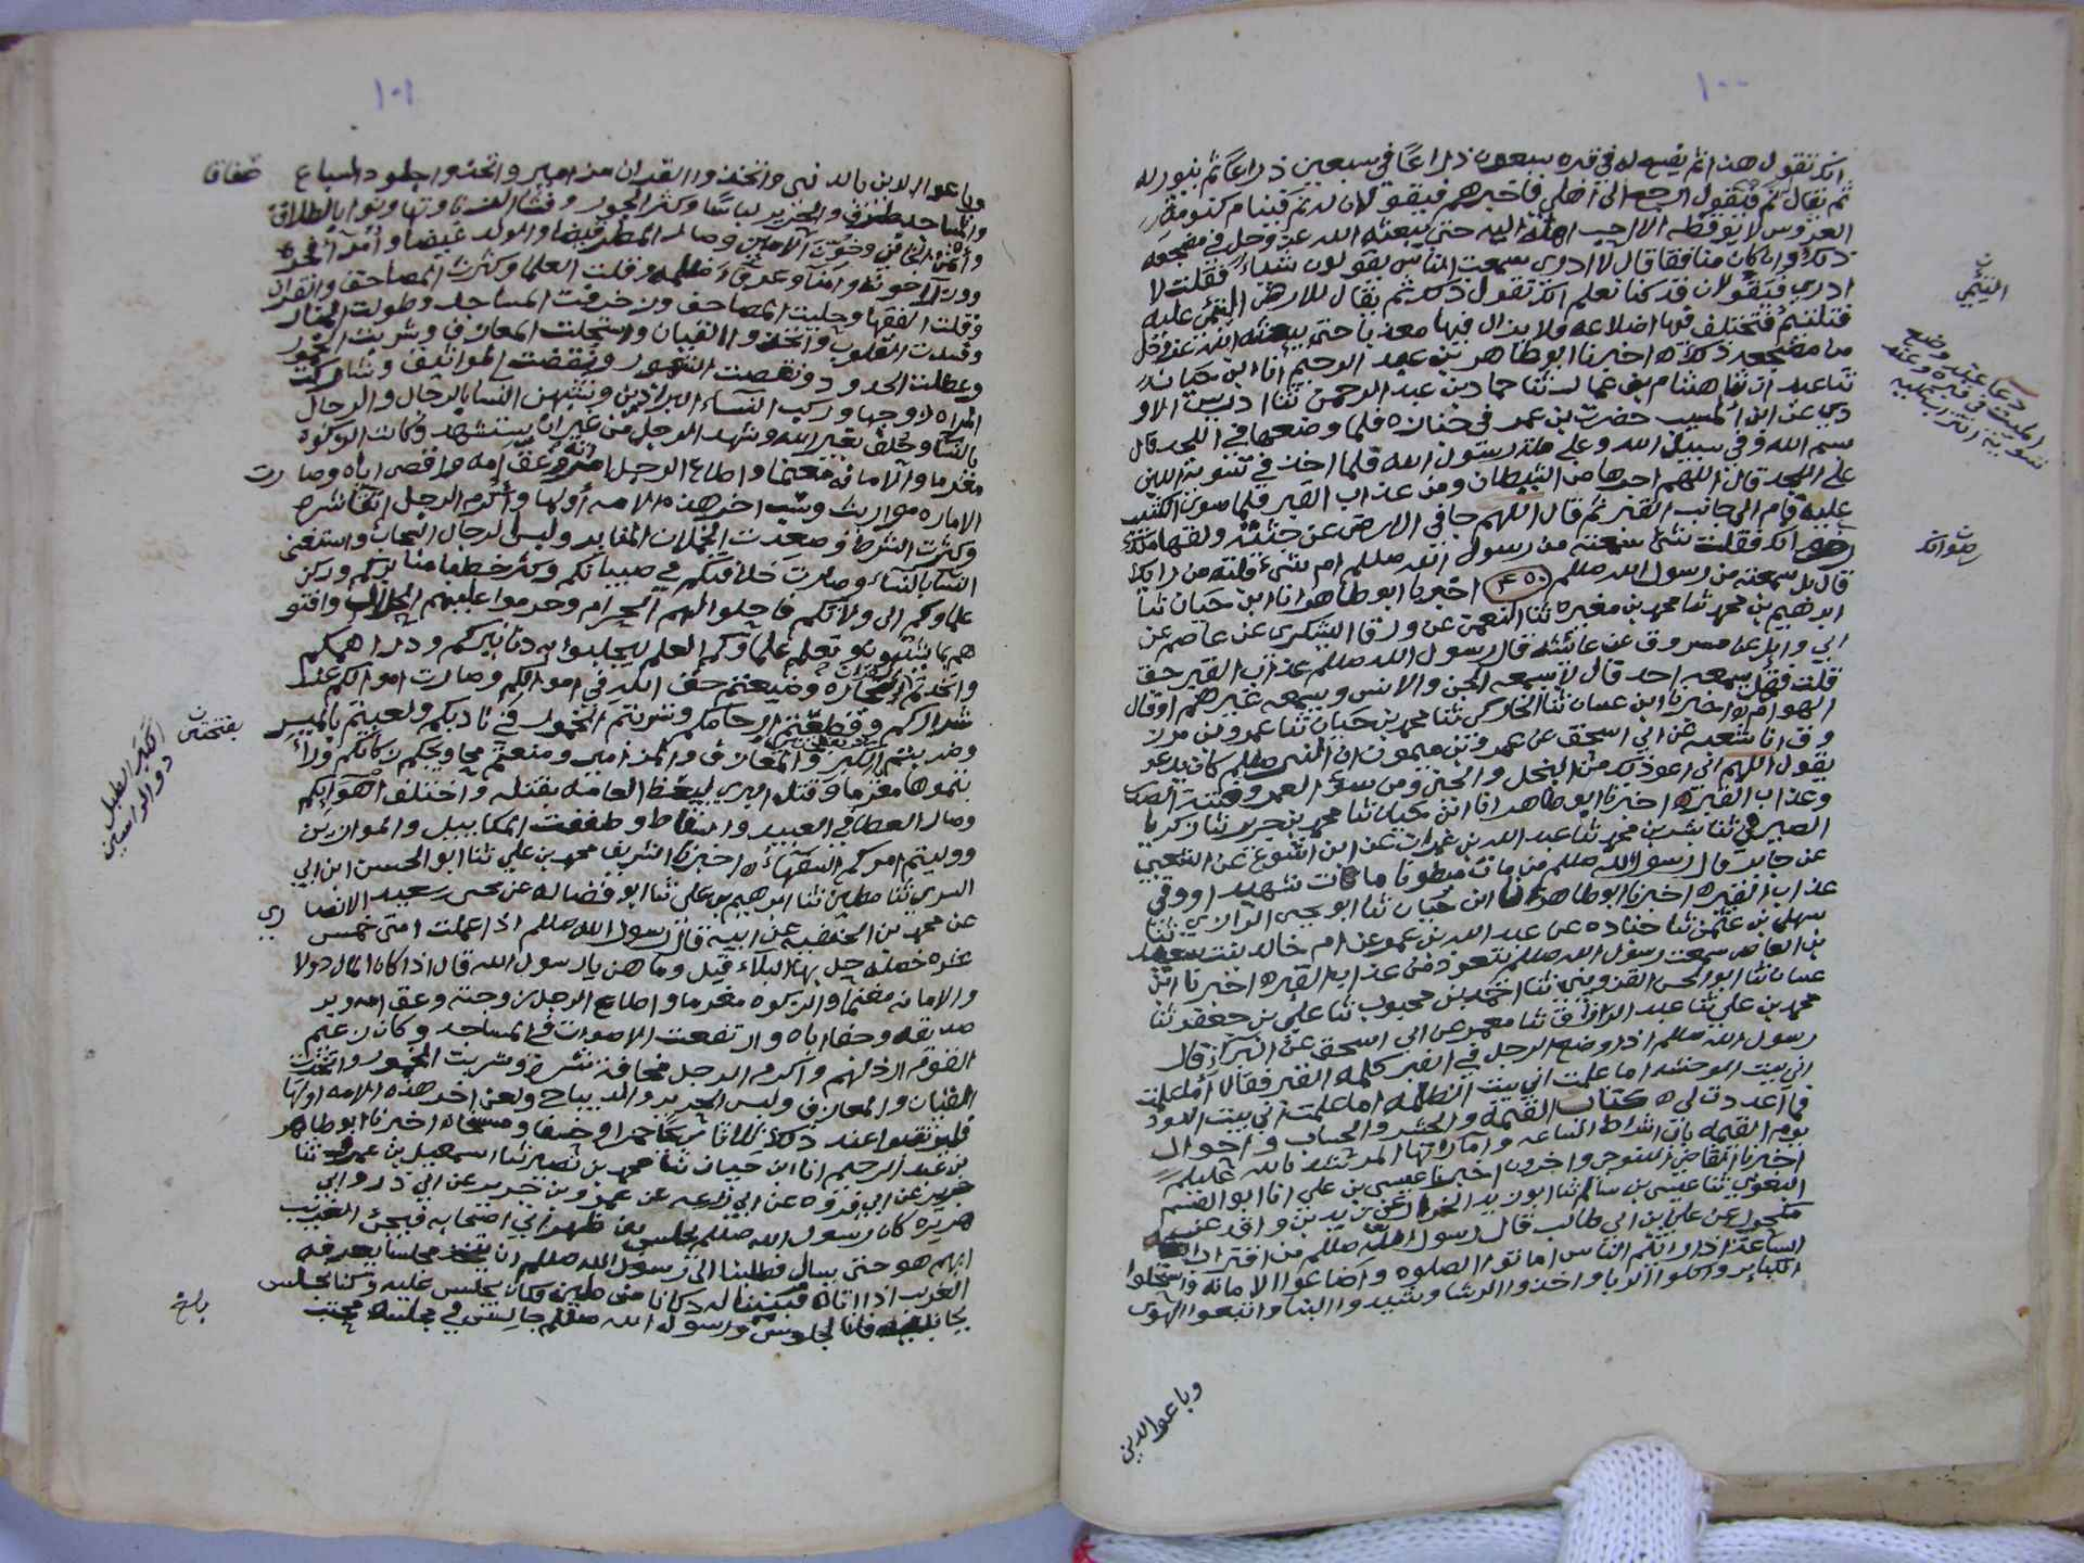 ١٠٠
انك تقول هذا ثم يفسح له في قبره سبعون ذراعا في سبعين ذراعا ثم ينور له
ثم يقال نم فيقول ارجع الى اهلي فاخبرهم فيقولان له نم فينام كنومة
العروس لا يوقظه الا احب اهله اليه حتى يبعثه الله عز وجل في مضجعه
ذلك وان كان منافقا قال لا ادري سمعت الناس يقولون شيئا فقلت لا
ادري فيقولان قد كنا نعلم انك تقول ذلك ثم يقال للارض التئمي عليه
فتلتئم فتختلف فيها اضلاعه فلا يزال فيها معذبا حتى يبعثه الله عز وجل
من مضجعه ذلك اخبرنا ابو طاهر بن عبد الرحيم انا ابن حيان
ثنا عبدان ثنا هشام بن عمار ثنا حماد بن عبد الرحمن ثنا ادريس الاو
دي عن ابن المسيب حضرت بن عمر في جنازة فلما وضعها في اللحد قال
بسم الله وفي سبيل الله وعلى ملة رسول الله فلما اخذ في تسوية اللبن
على اللحد قال اللهم اجرها من الشيطان ومن عذاب القبر فلما سوى الكثيب
عليه قام الى جانب القبر ثم قال اللهم جاف الارض عن جثته ولقها منك
رضوانك فقلت شئ سمعته من رسول الله صللم ام شئ قلته من رايك
قال بل سمعته من رسول الله صللم اخبرنا ابو طاهر انا ابن حيان ثنا
ابرهيم بن محمد ثنا محمد بن مغيرة ثنا النعمن عن ورقا اليشكري عن عاصم عن
ابي وايل عن مسروق عن عائشة قال رسول الله صللم عذاب القبر حق
قلت فهل يسمعه احد قال لا يسمعه الجن والانس ويسمعه غيرهم او قال
الهوام اخبرنا ابن غسان ثنا الخاركي ثنا محمد بن حيان ثنا عمرو بن مرز
وق انا شعبه عن ابي اسحق عن عمرو بن ميمون ان النبي صللم كان يدعو
يقول اللهم اني اعوذ بك من البخل والجبن ومن سوء العمر وفتنة الصدر
وعذاب القبر اخبرنا ابو طاهر انا ابن حيان ثنا محمد بن جرير ثنا زكريا
الصيرفي ثنا بشر بن محمد ثنا عبد الله بن عمران عن ابن اشوع عن الشعبي
عن جابر قال رسول الله صللم من مات مبطونا مات شهيدا ووقي
عذاب القبر اخبرنا ابو طاهر انا ابن حيان ثنا ابو يحيى الرازي ثنا
سهل بن عثمن ثنا جناده عن عبد الله بن عمر عن ام خالد بنت سعيد
بن العاص سمعت رسول الله صللم يتعوذ من عذاب القبر اخبرنا ابن
غسان ثنا ابو الحسن القزويني ثنا احمد بن محبوب ثنا علي بن جعفر ثنا
محمد بن علي ثنا عبد الرزاق ثنا معمر عن ابي اسحق عن البراء قال
رسول الله صللم اذا وضع الرجل في القبر كلمه القبر فقال اما علمت
اني بيت الوحشة اما علمت اني بيت الظلمة اما علمت اني بيت الدود
فما اعددت لي كتاب القيمة والحشر والحساب واحوال
يوم القيمه باب اشراط الساعه وامارتها المرشد بالله عليلم
اخبرنا القاضي التنوخي واخرون اخبرنا عيسى بن علي انا ابو القسم
البغوي ثنا عيسى بن سالم ثنا ابو زيد عن زيد بن واقد عن
مكحول عن علي بن ابي طالب قال رسول الله صللم من اقتراب
الساعة اذا رايتم الناس اماتوا الصلوة واضاعوا الامانة واستحلوا
الكبائر واكلوا الربا واخذوا الرشا وشيدوا البنا واتبعوا الهوى
وباعوا الدين
التئمي
دعا عند وضع
الميت في قبره وعند
تسوية التراب عليه
رضوانك
١٠١
وباعوا الدين بالدنيا واتخذوا القران مزامير واتخذوا جلود السباع صفاقا
والمساجد طرق والحرير لباسا وكثر الجور وفشا الزنا وتهاونوا بالطلاق
وائتمن الخائن وخون الامين وصار المطر قيضا والولد غيضا وامرآ فجره
ووزرآ خونه وامنا وعرفاء ظلمه وقلت العلما وكثرت المصاحف والقران
وقلت الفقها وحليت المصاحف وزخرفت المساجد وطولت المنار
وفسدت القلوب واتخذوا القيان واستحلت المعازف وشربت الخمور
وعطلت الحدود ونقصت الشهور ونقضت المواثيق وشاركت
المراه زوجها وركب النساء البراذين وتشبهن النسا بالرجال والرجال
بالنسا وحلف بغير الله وشهد الرجل من غير ان يستشهد وكانت الزكوة
مغرما والامانه مغنما واطاع الرجل امراته وعق امه واقصى اباه وصارت
الاماره مواريث وسب اخر هذه الامه اولها واكرم الرجل اتقا شره
وكثرت الشرط وصعدت الجهلات المنابر ولبس الرجال التيجان واستغنى
النسا بالنساء وصارت خلافتكم في صبيانكم وكثر خطبا منابركم وركن
علماوكم الى ولاتكم فاحلوا لهم الحرام وحرموا عليهم الحلال وافتو
هم بما يشتهون وتعلم علماوكم العلم ليجلبوا به دنانيركم ودراهمكم
واتخذتم القران تجاره وضيعتم حق الله في اموالكم وصارت اموالكم عند
شراركم وقطعتم ارحامكم وشربتم الخمور في ناديكم ولعبتم بالميسر
وضربتم الكبر والمعازف والمزامير ومنعتم محاويجكم زكاتكم ورأ
يتموها مغرما وقتل البري ليغيظ العامة بقتله واختلفت اهواؤكم
وصار العطا في العبيد والسقاط وطففت المكاييل والموازين
ووليتم اموركم السفهاء اخبرنا الشريف محمد بن علي ثنا ابو الحسن ابن ابي
السري ثنا مطين ثنا ابرهيم بن علي ثنا ابو فضاله عن يحيى سعيد الانصاري
عن محمد بن الحنفيه عن ابيه قال رسول الله صللم اذا عملت امتي خمس
عشره خصله حل بها البلاء قيل وما هن يا رسول الله قال اذا كان المال دولا
والامانه مغنما والزكوة مغرما واطاع الرجل زوجته وعق امه وبر
صديقه وجفا اباه وارتفعت الاصوات في المساجد وكان زعيم
القوم ارذلهم واكرم الرجل مخافة شره وشربت الخمور واتخذت
القيان والمعازف ولبس الحرير والديباج ولعن اخر هذه الامه اولها
فليرتقبوا عند ذلك ثلاثا ريحا حمرا وخسفا ومسخا اخبرنا ابو طاهر
بن عبد الرحيم انا ابن حيان ثنا محمد بن نصير ثنا اسمعيل بن عمرو ثنا
جرير عن ابي فروه عن ابي زرعه عن عمرو بن جرير عن ابي ذر وابي
هريرة كان رسول الله صللم يجلس بين ظهراني اصحابه فيجئ الغريب
ايهم هو حتى يسال فطلبنا الى رسول الله صللم ان يتخذ مجلسا يعرفه
الغريب اذا اتاه فبنينا له دكانا من طين فكان يجلس عليه وكنا نجلس
بجانبه فانا لجلوس ورسول الله صللم جالس في مجلسه محتب
بفتحتين
الكبر الطبل
ذو الراسين
بلغ